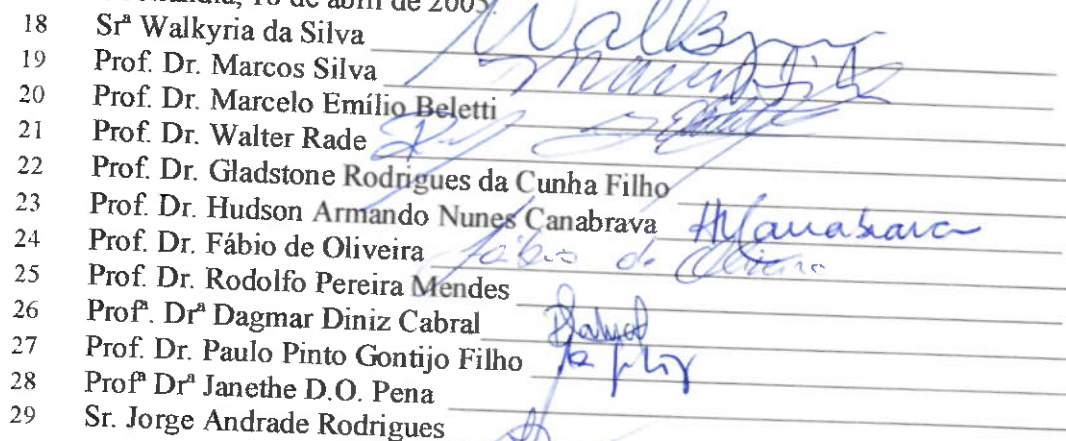 18 de abril de 2005.
18 Srª Walkyria da Silva Walkyria
19 Prof. Dr. Marcos Silva
20 Prof. Dr. Marcelo Emílio Beletti
21 Prof. Dr. Walter Rade
22 Prof. Dr. Gladstone Rodrigues da Cunha Filho
23 Prof. Dr. Hudson Armando Nunes Canabrava HACanabrava
24 Prof. Dr. Fábio de Oliveira Fábio de Oliveira
25 Prof. Dr. Rodolfo Pereira Mendes
26 Profª. Drª Dagmar Diniz Cabral
27 Prof. Dr. Paulo Pinto Gontijo Filho
28 Profª Drª Janethe D.O. Pena
29 Sr. Jorge Andrade Rodrigues